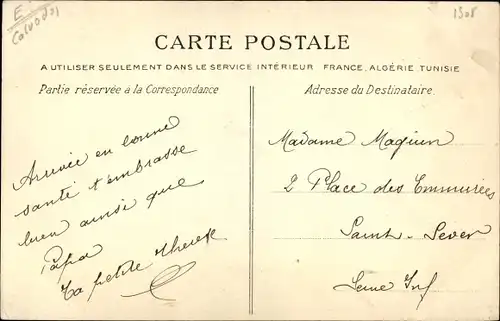 E
Calvados
1908
CARTE POSTALE
A UTILISER SEULEMENT DANS LE SERVICE INTÉRIEUR FRANCE, ALGÉRIE, TUNISIE
Partie réservée à la Correspondance
Arrivée en bonne
santé t'embrasse
bien ainsi que
Papa
Ta petite Therese
Adresse du Destinataire
Madame
2 Place des Emmurées
Saint-Sever
Seine Inf